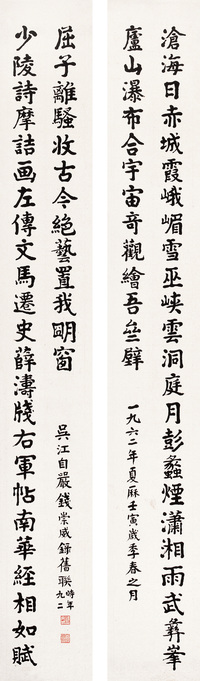 滄海日赤城霞峨嵋雪巫峽雲洞庭月彭蠡煙瀟湘雨武彝峯
廬山瀑布合宇宙奇觀繪吾齋壁
一九六二年夏麻壬寅歲季春之月
少陵詩摩詰画左傳文馬遷史薛濤牋右軍帖南華經相如賦
屈子離騷收古今絕藝置我明窗
吳江自嚴錢崇威錄舊聯時年九二